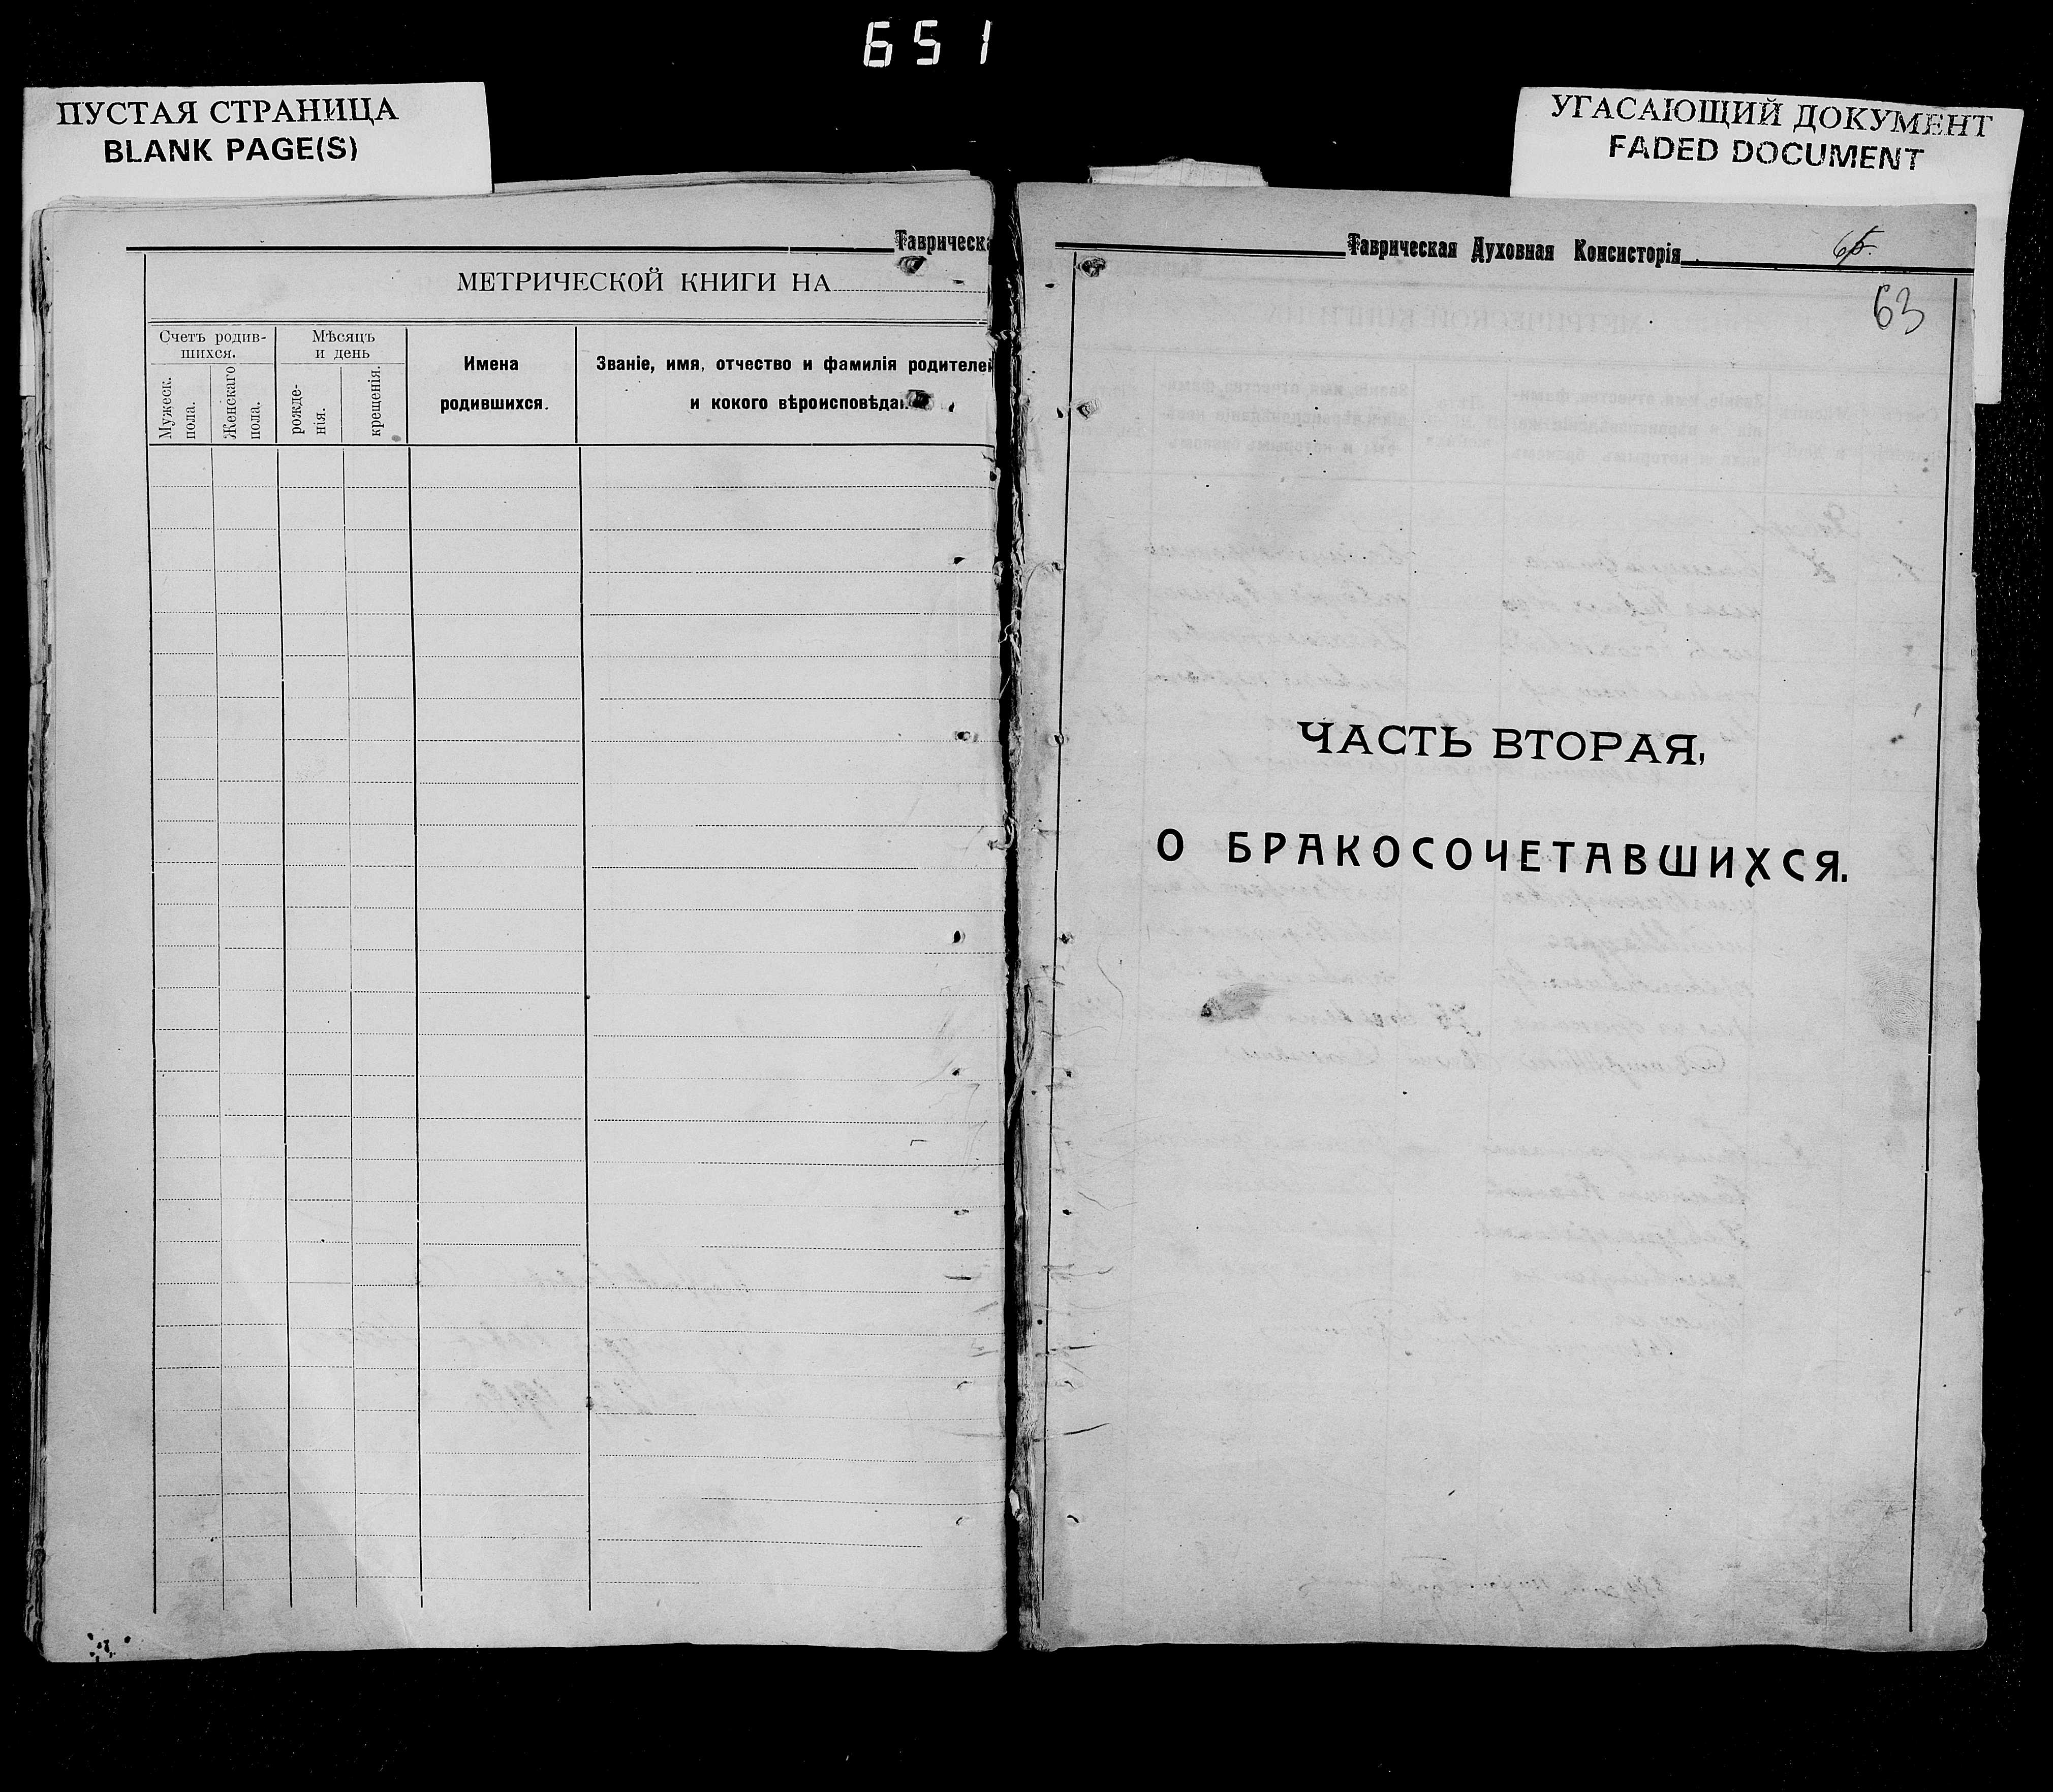 651
ПУСТАЯ СТРАНИЦА
BLANK PAGE(S)
УГАСАЮЩИЙ ДОКУМЕНТ
FADED DOCUMENT
Таврическа
МЕТРИЧЕСКОЙ КНИГИ НА
Счетъ родив-
шихся.
Мѣсяцъ
и день
Мужеск.
пола.
Женскаго
пола.
рожде-
нія.
крещенія.
Имена
родившихся.
Званіе, имя, отчество и фамилія родителей
и кокого вѣроисповѣдан
Таврическая Духовная Консисторія
63
ЧАСТЬ ВТОРАЯ,
О БРАКОСОЧЕТАВШИХСЯ.